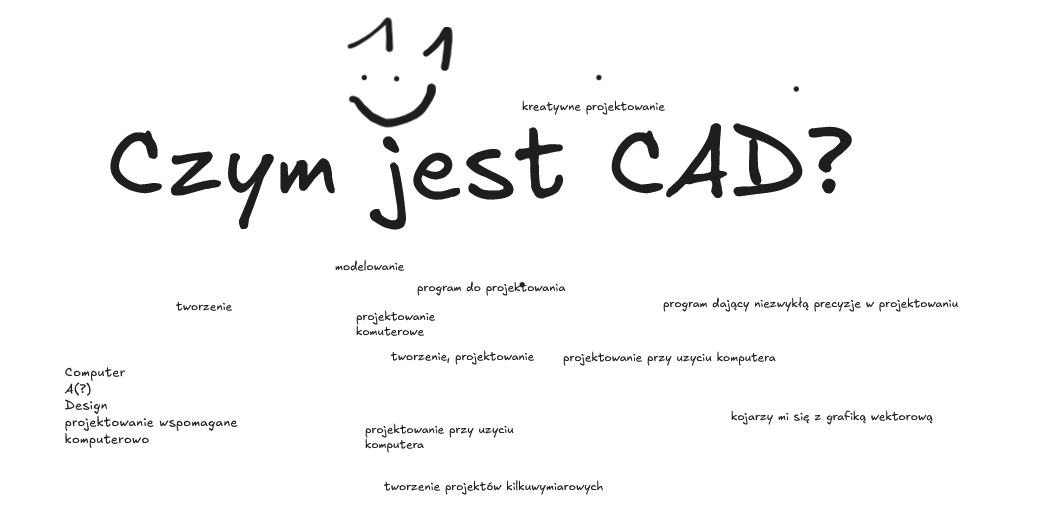 kreatywne projektowanie
Czym jest CAD?
modelowanie
program do projektowania
tworzenie
program dający niezwykłą precyzje w projektowaniu
projektowanie
komuterowe
tworzenie, projektowanie
projektowanie przy uzyciu komputera
Computer
A(?)
Design
projektowanie wspomagane
komputerowo
kojarzy mi się z grafiką wektorową
projektowanie przy uzyciu
komputera
tworzenie projektów kilkuwymiarowych